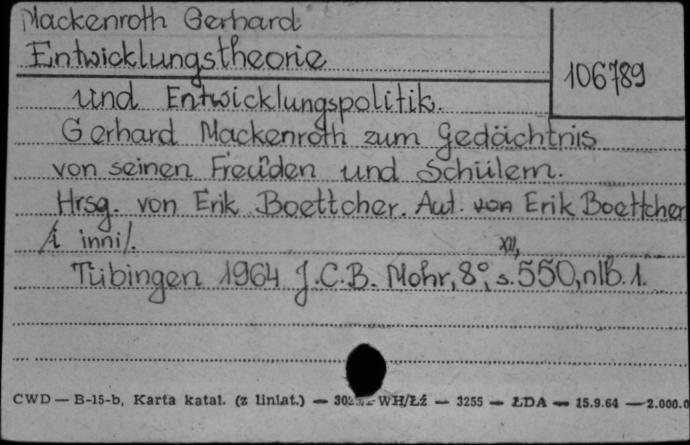 Mackenroth Gerhard
Entwicklungstheorie
106789
und Entwicklungspolitik.
Gerhard Mackenroth zum Gedächtnis
von seinen Freuden und Schülern.
Hrsg. von Erik Boettcher. Aut. von Erik Boettcher
/i inni/.
Tübingen 1964 J.C.B. Mohr, 8°, XII, s. 550, nlb. 1.
CWD — B-15-b, Karta katal. (z liniat.) — WH/Łź — 3255 — ŁDA — 15.9.64 — 2.000.0